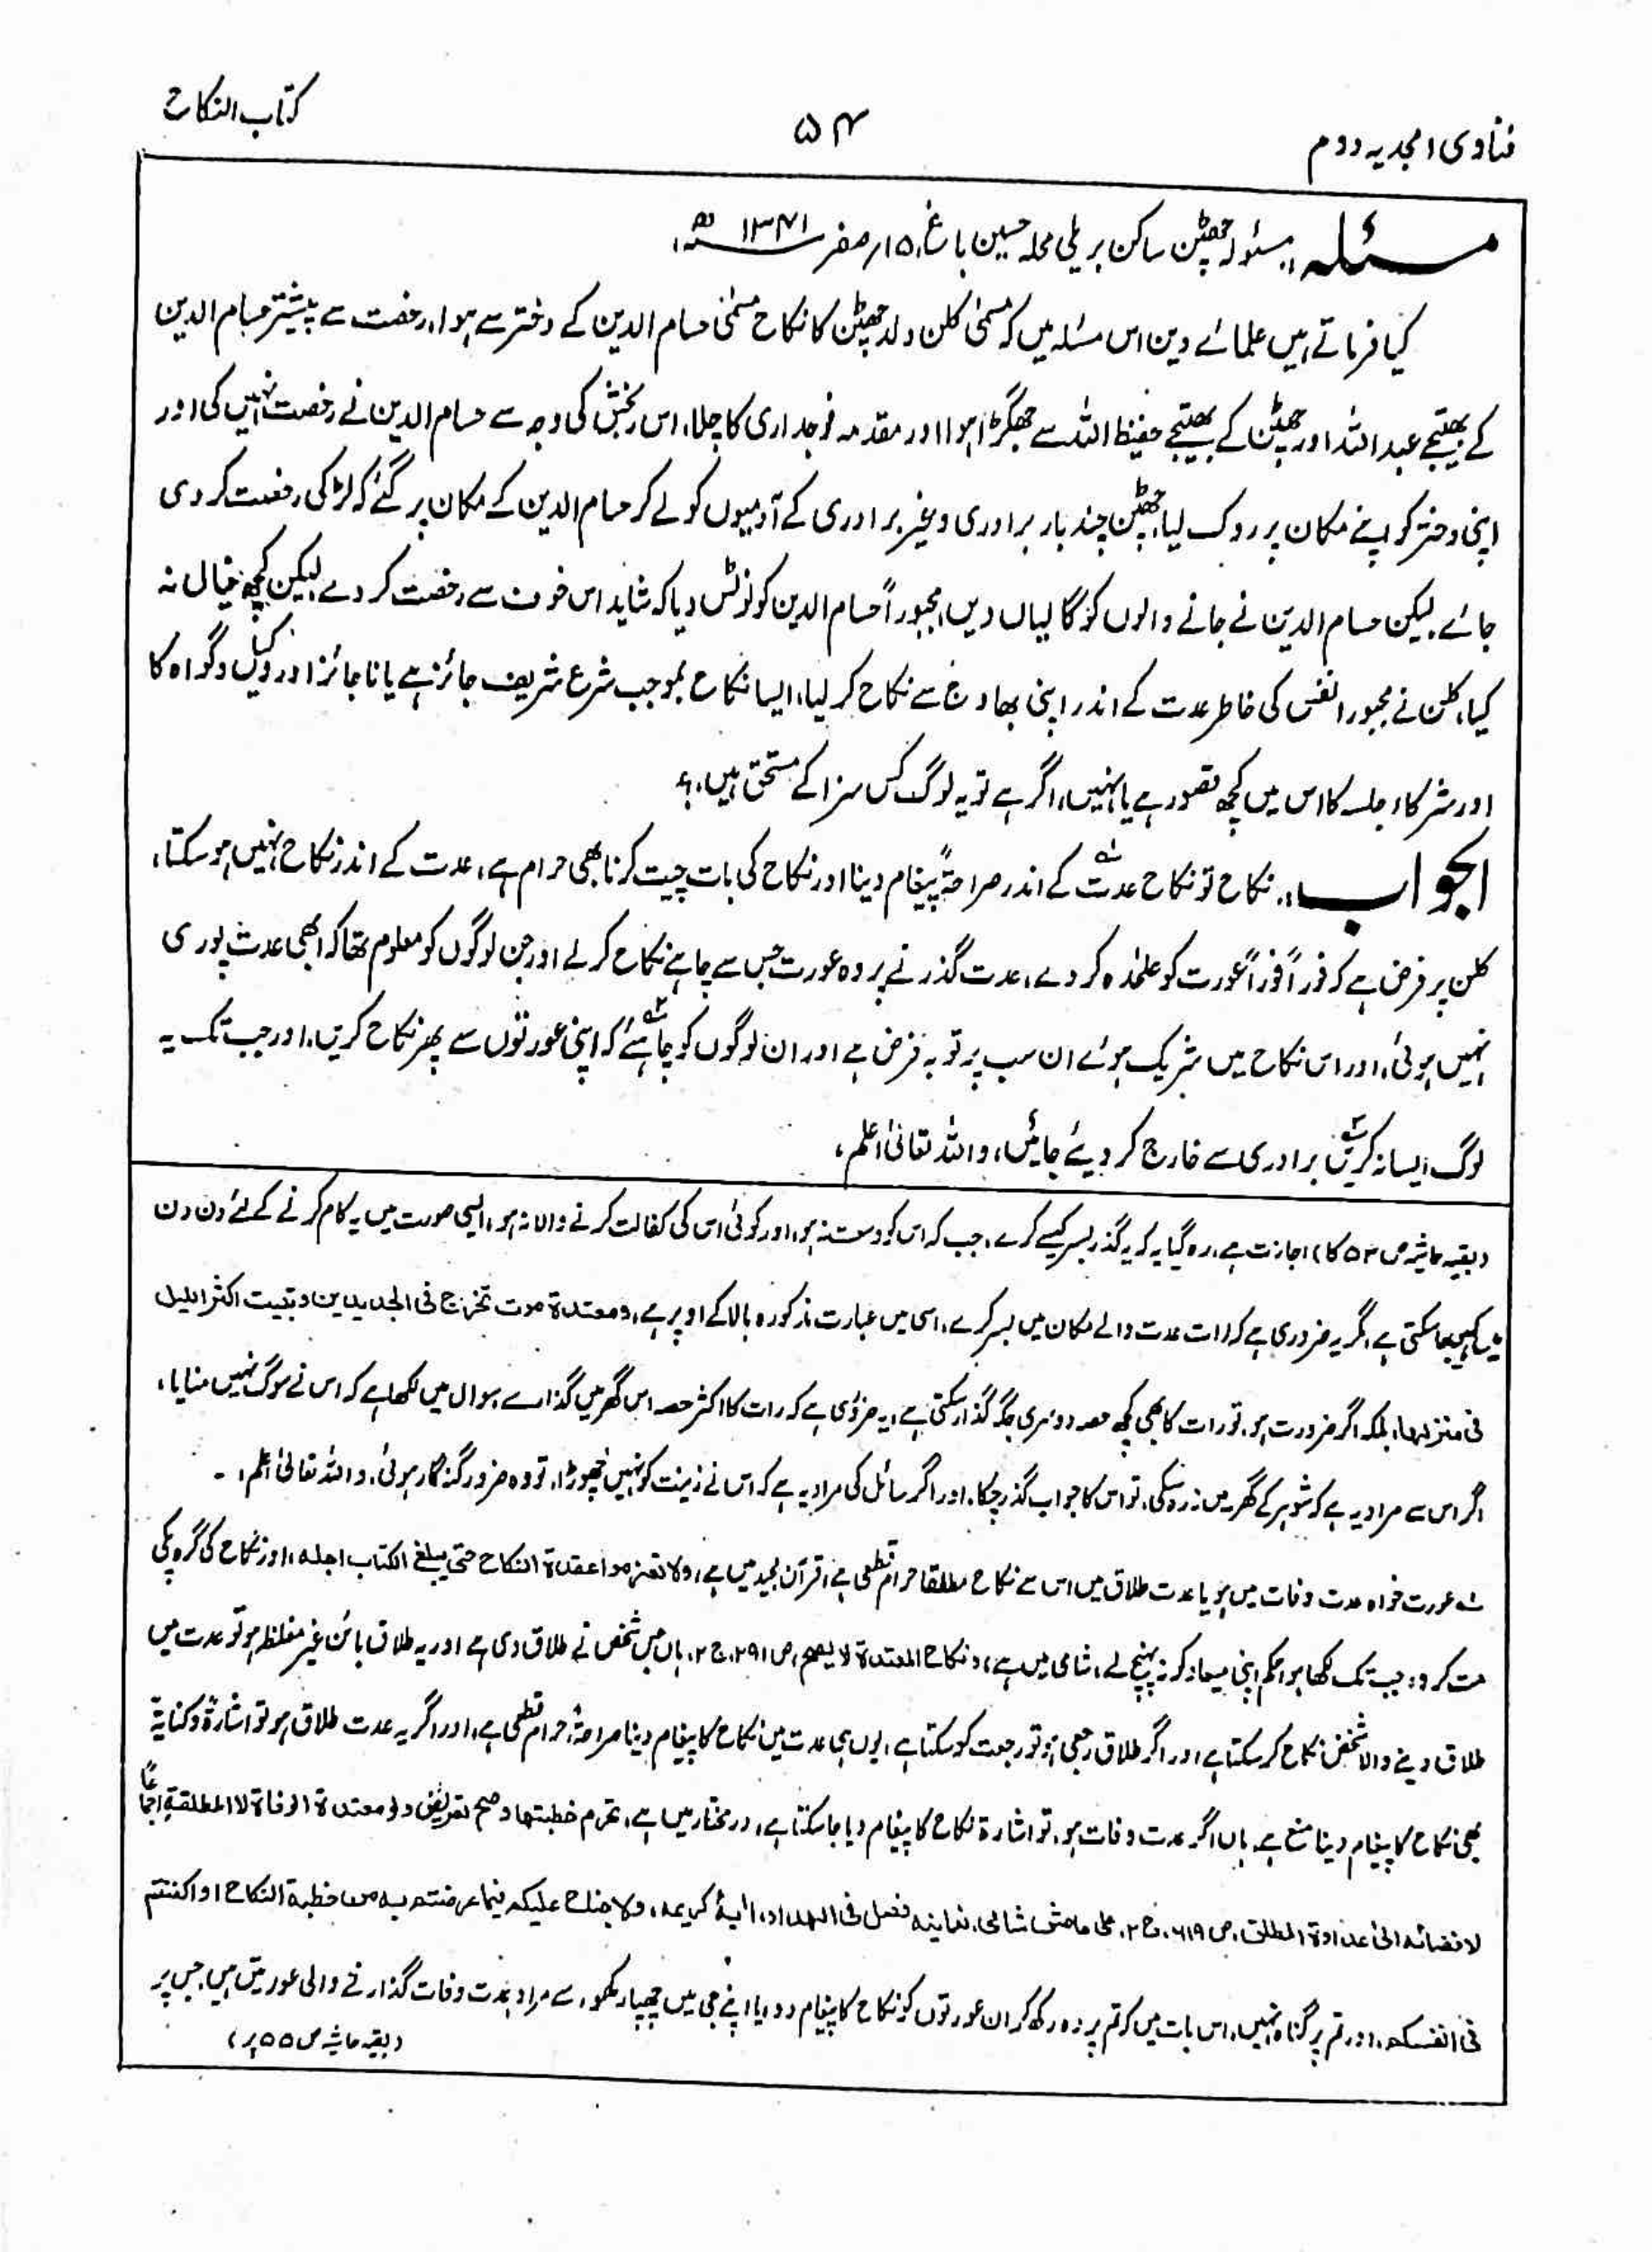 فتاوی امجدیہ دوم
۵۴
کتاب النکاح
مسئلہ:۔ مسئولہ چھٹن ساکن بریلی محلہ حسین باغ، ۱۵؍ صفر ۱۳۴۱ ھ،
کیا فرماتے ہیں علمائے دین اس مسئلہ میں کہ مسمّیٰ کلن ولد چھٹن کا نکاح مسمّیٰ حسام الدین کے دختر سے ہوا، رخصت سے پیشتر حسام الدین
کے بھتیجے عبد اللہ اور چھٹن کے بھتیجے حفیظ اللہ سے جھگڑا ہوا اور مقدمہ فوجداری کا چلا، اس رنجش کی وجہ سے حسام الدین نے رخصت نہیں کی اور
اپنی دختر کو اپنے مکان پر روک لیا، چھٹن چند بار برادری و غیر برادری کے آدمیوں کو لے کر حسام الدین کے مکان پر گئے کہ لڑکی رخصت کر دی
جائے لیکن حسام الدین نے جانے والوں کو گالیاں دیں، مجبوراً حسام الدین کو نوٹس دیا کہ شاید اس خوف سے رخصت کر دے لیکن کچھ خیال نہ
کیا، کلن نے مجبورا نفس کی خاطر عدت کے اندر اپنی بھاوج سے نکاح کر لیا، ایسا نکاح بموجب شرع شریف جائز ہے یا ناجائز اور وکیل و گواہ کا
اور شرکاء جلسہ کا اس میں کچھ قصور ہے یا نہیں، اگر ہے تو یہ لوگ کس سزا کے مستحق ہیں،؟
الجواب:۔ نکاح تو نکاح عدت؁۱ کے اندر صراحۃً پیغام دینا اور نکاح کی بات چیت کرنا بھی حرام ہے، عدت کے اندر نکاح نہیں ہو سکتا،
کلن پر فرض ہے کہ فوراً فوراً عورت کو علٰحدہ کر دے، عدت گذرنے پر وہ عورت جس سے چاہے نکاح کر لے اور جن لوگوں کو معلوم تھا کہ ابھی عدت پوری
نہیں ہوئی، اور اس نکاح میں شریک ہوئے ان سب پر توبہ فرض ہے اور ان لوگوں کو چاہئے؁۲ کہ اپنی عورتوں سے پھر نکاح کریں، اور جب تک یہ
لوگ ایسا نہ کریں؁۳ برادری سے خارج کر دیئے جائیں، واللہ تعالیٰ اعلم،
(بقیہ حاشیہ ص ۵۳ کا) اجازت ہے، رہ گیا یہ کہ یہ گذر بسر کیسے کرے، جب کہ اس کو وسعت نہ ہو، اور کوئی اس کی کفالت کرنے والا نہ ہو، ایسی صورت میں یہ کام کرنے کے لئے دن دن
میں کہیں جا سکتی ہے، مگر یہ ضروری ہے کہ رات عدت والے مکان میں بسر کرے، اسی میں عبارت مذکورہ بالا کے اوپر ہے، ومعتدۃ موت تخرج فی الجدیدین وتبیت اکثر اللیل
فی منزلہا، بلکہ اگر ضرورت ہو، تو رات کا بھی کچھ حصہ دوسری جگہ گذار سکتی ہے، یہ ضروری ہے کہ رات کا اکثر حصہ اس گھر میں گذارے، سوال میں لکھا ہے کہ اس نے سوگ نہیں منایا،
اگر اس سے مراد یہ ہے کہ شوہر کے گھر میں نہ رہ سکی، تو اس کا جواب گذر چکا، اور اگر سائل کی مراد یہ ہے کہ اس نے زینت کو نہیں چھوڑا، تو وہ ضرور گنہگار ہوئی، واللہ تعالیٰ اعلم،۔
؁۱ عورت خواہ عدت وفات میں ہو یا عدت طلاق میں اس سے نکاح مطلقا حرام قطعی ہے، قرآن مجید میں ہے، ولا تعزموا عقدۃ النکاح حتی یبلغ الکتاب اجلہ، اور نکاح کی گرہ پکی
مت کرو، جب تک لکھا ہوا حکم اپنی میعاد کو نہ پہنچ لے، شامی میں ہے، ونکاح المعتدۃ لا یصح، ص ۲۹۱، ج ۲، ہاں جس شخص نے طلاق دی ہے اور یہ طلاق بائن غیر مغلظ ہو تو عدت میں
طلاق دینے والا شخص نکاح کر سکتا ہے، اور اگر طلاق رجعی ہو تو رجعت کر سکتا ہے، یوں ہی عدت میں نکاح کا پیغام دینا صراحۃً حرام قطعی ہے، اور اگر یہ عدت طلاق ہو تو اشارۃً وکنایۃً
بھی نکاح کا پیغام دینا منع ہے، ہاں اگر عدت وفات ہو، تو اشارۃ نکاح کا پیغام دیا جا سکتا ہے، درمختار میں ہے، تحرم خطبتہا وصح تعریض ولو معتدۃ الوفاۃ لا المطلقۃ اجماعًا
لافضائہ الی عداوۃ المطلق، ص ۶۱۹، ج ۲، علی ہامش شامی، آیۂ کریمہ، ولا جناح علیکم فیما عرضتم بہ من خطبۃ النکاح او اکننتم
فی انفسکم، اور تم پر گناہ نہیں، اس بات میں کہ تم پردہ رکھ کر ان عورتوں کو نکاح کا پیغام دو، یا اپنے جی میں چھپا رکھو، سے مراد عدت وفات گذارنے والی عورتیں ہیں، جس پر
(بقیہ حاشیہ ص ۵۵ پر)